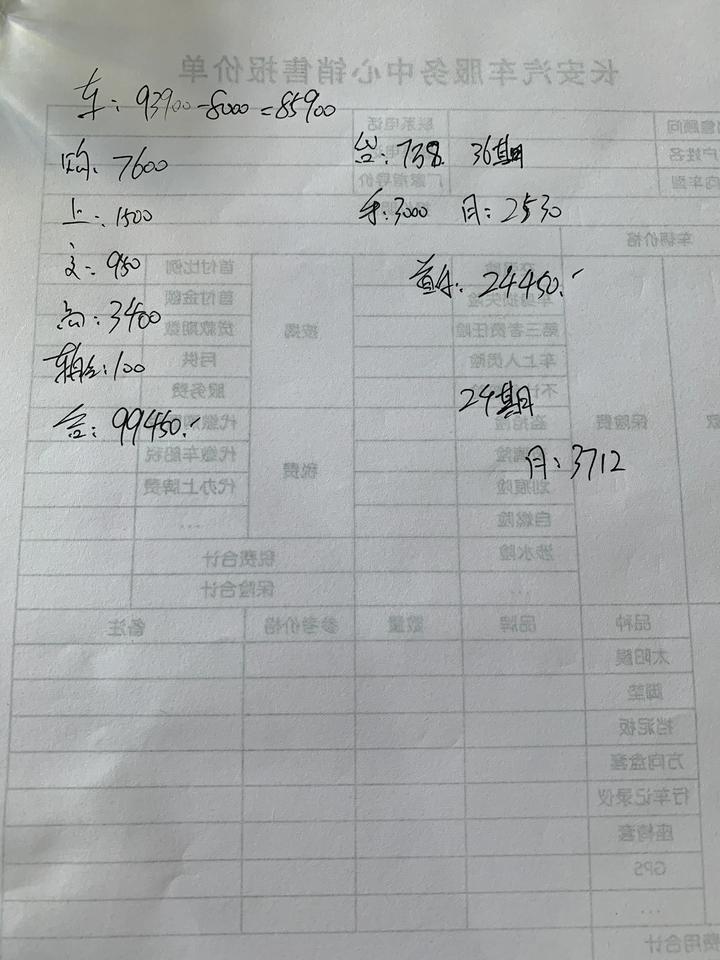 长安汽车服务中心销售报价单
车: 93900-8000=85900
购: 7600
贷: 738. 36期
上: 1500
手: 3000 月: 2530
交: 950
首付: 24450.
商: 3400
车船: 100
合: 99450.
24期
月: 3712
联系电话
厂家指导价
车辆价格
首付比例
首付金额
贷款期数
月供
服务费
按揭
第三者责任险
车上人员险
保险费
代缴车船税
代办上牌费
...
税费
划痕险
自燃险
涉水险
...
税费合计
保险合计
品种
品牌
数量
参考价格
备注
太阳膜
脚垫
挡泥板
方向盘套
行车记录仪
座椅套
GPS
...
费用合计